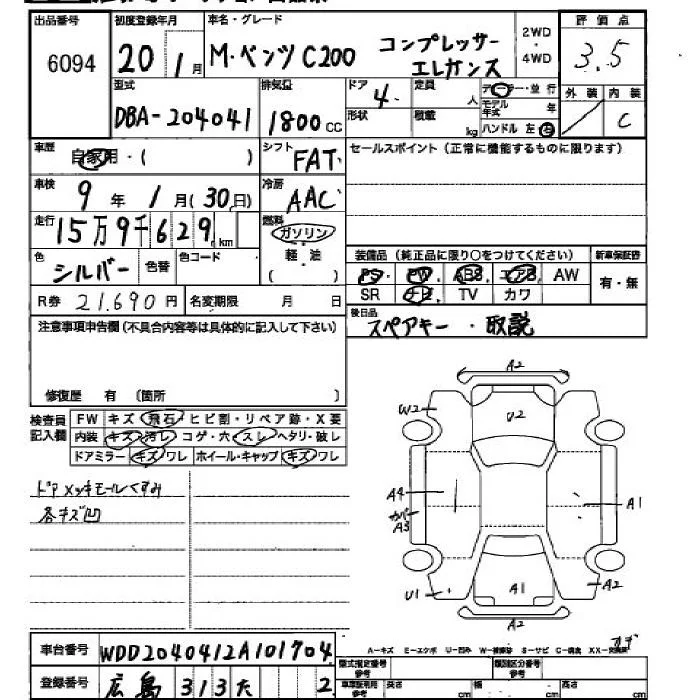 出品番号 初度登録年月 車名・グレード 2WD・4WD 評価点
6094 20 1月 M・ベンツC200 コンプレッサー エレガンス 3.5
型式 排気量 ドア 定員 人 ディーラー・並行 外装 内装
DBA-204041 1800cc 4 形状 積載 kg モデル年式 年 ハンドル 左右 C
車歴 自家用・( ) シフト FAT セールスポイント (正常に機能するものに限ります)
車検 9年 1月(30日) 冷房 AAC
走行 15万9千629km 燃料 ガソリン
軽油
( )
色 シルバー 色替 色コード 装備品 (純正品に限り○をつけてください) 新車保証書
PS PW ABS エアB AW 有・無
R券 21,690円 名変期限 月 日 SR ナビ TV カワ
注意事項申告欄(不具合内容等は具体的に記入して下さい) 後日品 スペアキー・取説
修復歴 有 〔箇所 〕
検査員記入欄 FW キズ・飛石・ヒビ割・リペア跡・X要
内装 キズ・汚レ・コゲ・穴・スレ・ヘタリ・破レ
ドアミラー キズ・ワレ ホイール・キャップ キズ・ワレ
ドアメッキモールくすみ
各キズ凹
A2
W2 U2
A4 A1
カバー
A3
U1 A1 A2
A2
A-キズ E-エクボ U-凹み W-補修跡 S-サビ C-腐食 XX-交換済
車台番号 WDD2040412A101704 型式指定番号 参考 類別区分番号 参考
登録番号 広島 313 た 2 車車証明用 参考 長さ cm 幅 cm 高さ cm